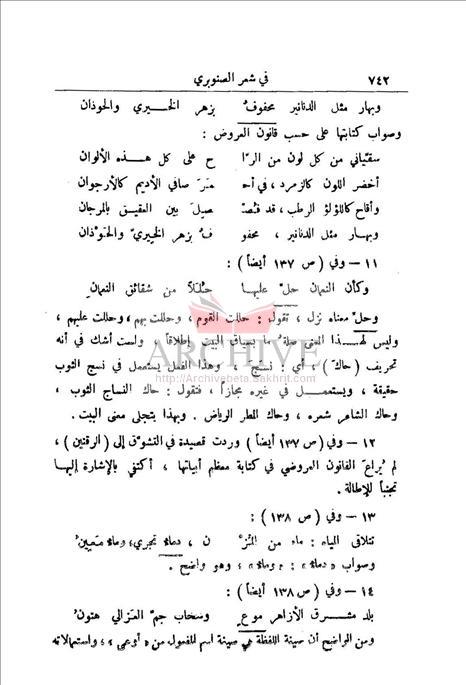 ٧٤٢ في شعر الصنوبري
وبهار مثل الدنانير محفوفٌ بزهر الخيري والحوذان
وصواب كتابتها على حسب قانون العروض :
سقتياني من كل لون من الرّا ح على كل هذه الألوان
أخضر اللون كالزمرد ، في أحـ مَرَ صافي الأديم كالأرجوان
وأقاح كاللؤلؤ الرطب ، قد فُصّـ صِلَ بين العقيق بالمرجان
وبهار مثل الدنانير ، محفو فٌ بزهر الخِيريّ والحَوْذان
١١ – وفي ( ص ١٣٧ أيضاً ) :
وكأن النعمان حلّ عليها حُلَلاً من شقائق النعمان
وحلّ معناه نزل ، تقول : حللت القوم ، وحللت بهم ، وحللت عليهم ،
وليس لهذا المعنى صلة بسياق البيت إطلاقاً . ولست أشك في أنه
ARCHIVE
تحريف ( حاك ) ، أي : نسج ، وهذا الفعل يستعمل في نسج الثوب
http://Archivebeta.Sakhrit.com
حقيقة ، ويستعمل في غيره مجازاً ، فتقول : حاك النساج الثوب ،
وحاك الشاعر شعره ، وحاك المطر الرياض . وبهذا يتجلى معنى البيت .
١٢ – وفي ( ص ١٣٧ أيضاً ) وردت قصيدة في التشوّق إلى ( الرقتين ) ،
لم يُراعَ القانون العروضي في كتابة معظم أبياتها ، أكتفي بالإشارة إليها
تجنباً للإطالة .
١٣ – وفي ( ص ١٣٨ ) :
تتلاقى المياه : ماء من المُزْ ن ، دماءٌ تجري ؛ وماء مَعينُ
وصواب « دماء » : « وماء » ، وهو واضح .
١٤ – وفي ( ص ١٣٨ أيضاً ) :
بلد مشرق الأزاهر موعٍ وسحاب جمّ العزالي هتونُ
ومن الواضح أن صيغة اللفظة هي صيغة اسم المفعول من « أوعى » ، واستعمالاته